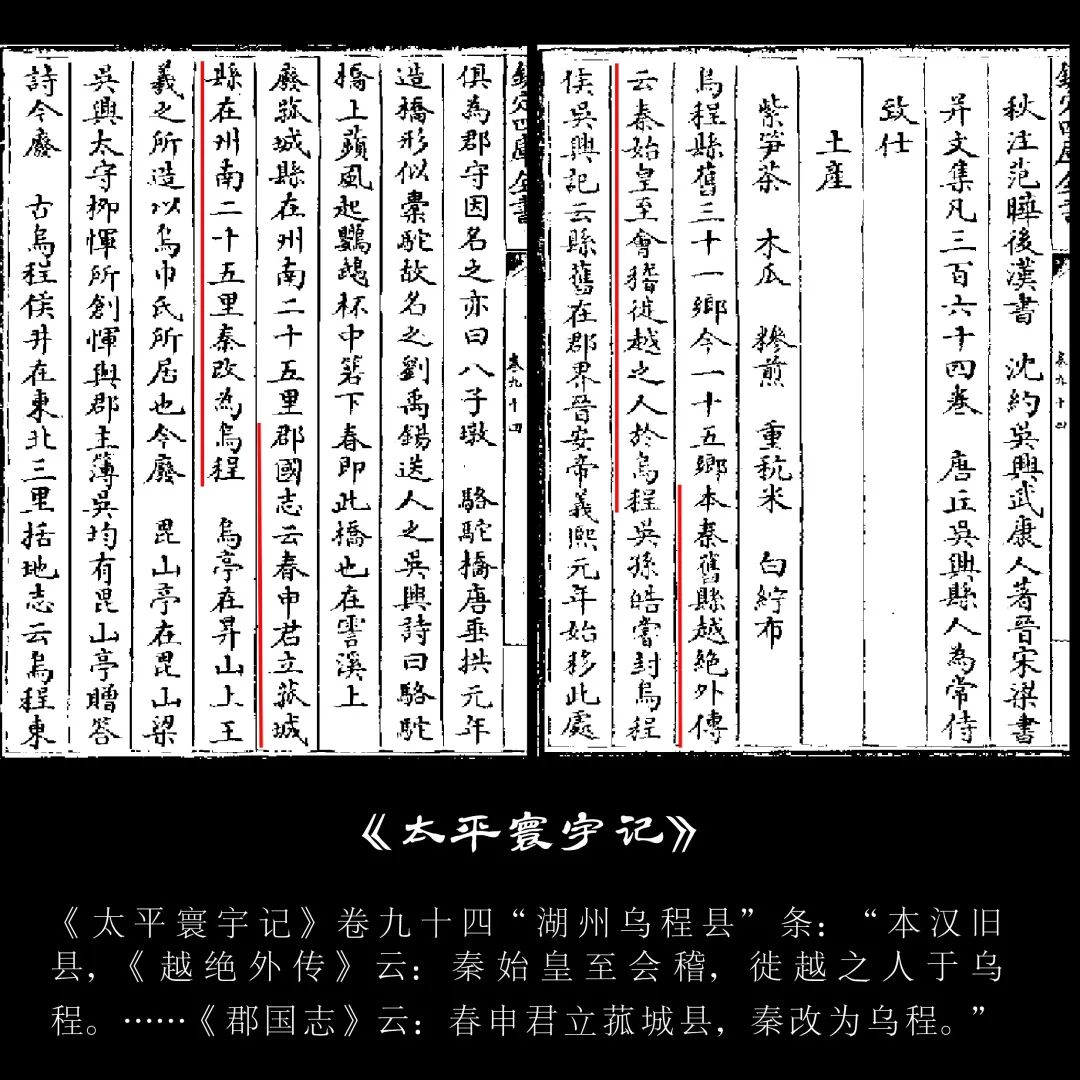 欽定四庫全書 卷九十四
秋注范曄後漢書 沈約吳興武康人著晉宋梁書
并文集凡三百六十四卷 唐丘吳興縣人為常侍
致仕
土産
紫笋茶 木瓜 糝煎 重秔米 白紵布
烏程縣舊三十一鄉今一十五鄉本秦舊縣越絶外傳
云秦始皇至會稽徙越之人於烏程吳孫皓嘗封烏程
侯吳興記云縣舊在郡界晉安帝義熙元年始移此處
欽定四庫全書 卷九十四
俱為郡守因名之亦曰八子墩 駱駝橋唐垂拱元年
造橋形似橐駝故名之劉禹錫送人之吳興詩曰駱駝
橋上蘋風起鸚鵡杯中箬下春即此橋也在霅溪上
廢菰城縣在州南二十五里郡國志云春申君立菰城
縣在州南二十五里秦改為烏程 烏亭在昇山上王
羲之所造以烏巾氏所居也今廢 毘山亭在毘山梁
吳興太守柳惲所創惲與郡主簿吳均有毘山亭贈答
詩今廢 古烏程侯井在東北三里括地志云烏程東
《太平寰宇记》
《太平寰宇记》卷九十四“湖州乌程县”条：“本汉旧
县，《越绝外传》云：秦始皇至会稽，徙越之人于乌
程。……《郡国志》云：春申君立菰城县，秦改为乌程。”